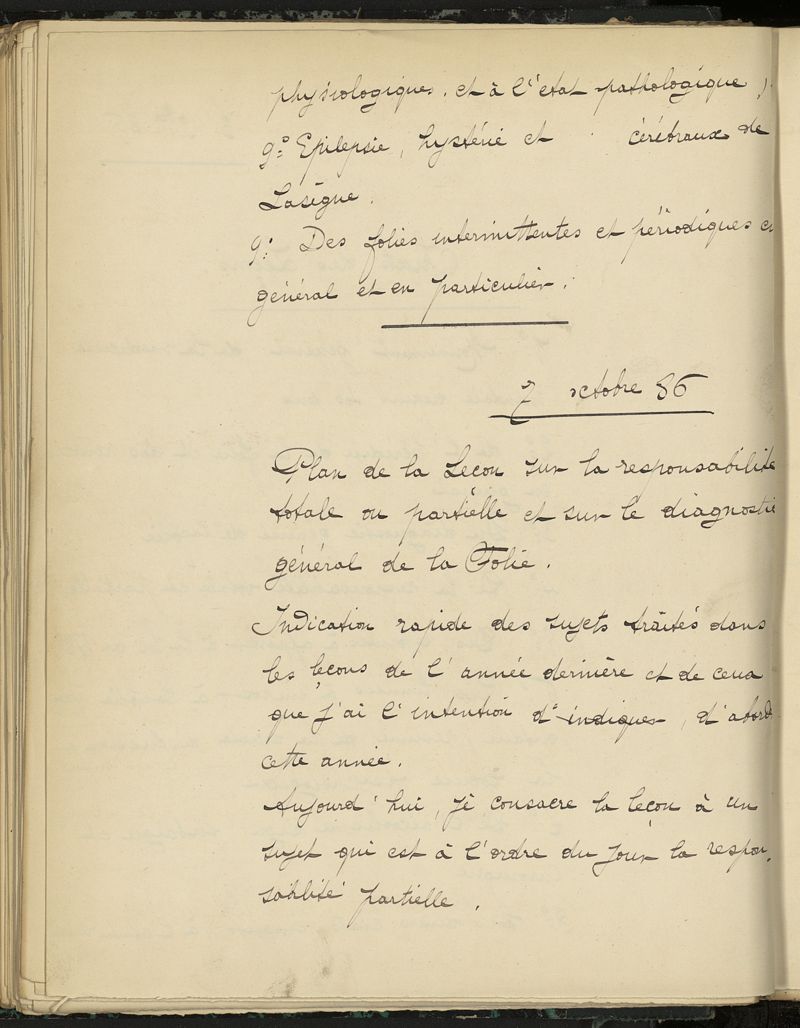 physiologiques. et à l'état pathologique.)
9:° Epilepsie, hystérie et cérébraux de
Lasègue.
9: Des folies intermittentes et périodiques en
général et en particulier.
7 octobre 86
Plan de la Lecon sur la responsabilité
totale ou partielle et sur le diagnostic
général de la Folie.
Indication rapide des sujets traités dans
les leçons de l'année dernière et de ceux
que j'ai l'intention d' indiquer, d'aborder
cette année.
Aujourd'hui, je consacre la leçon à un
sujet qui est à l'ordre du jour la respon
sabilité partielle.